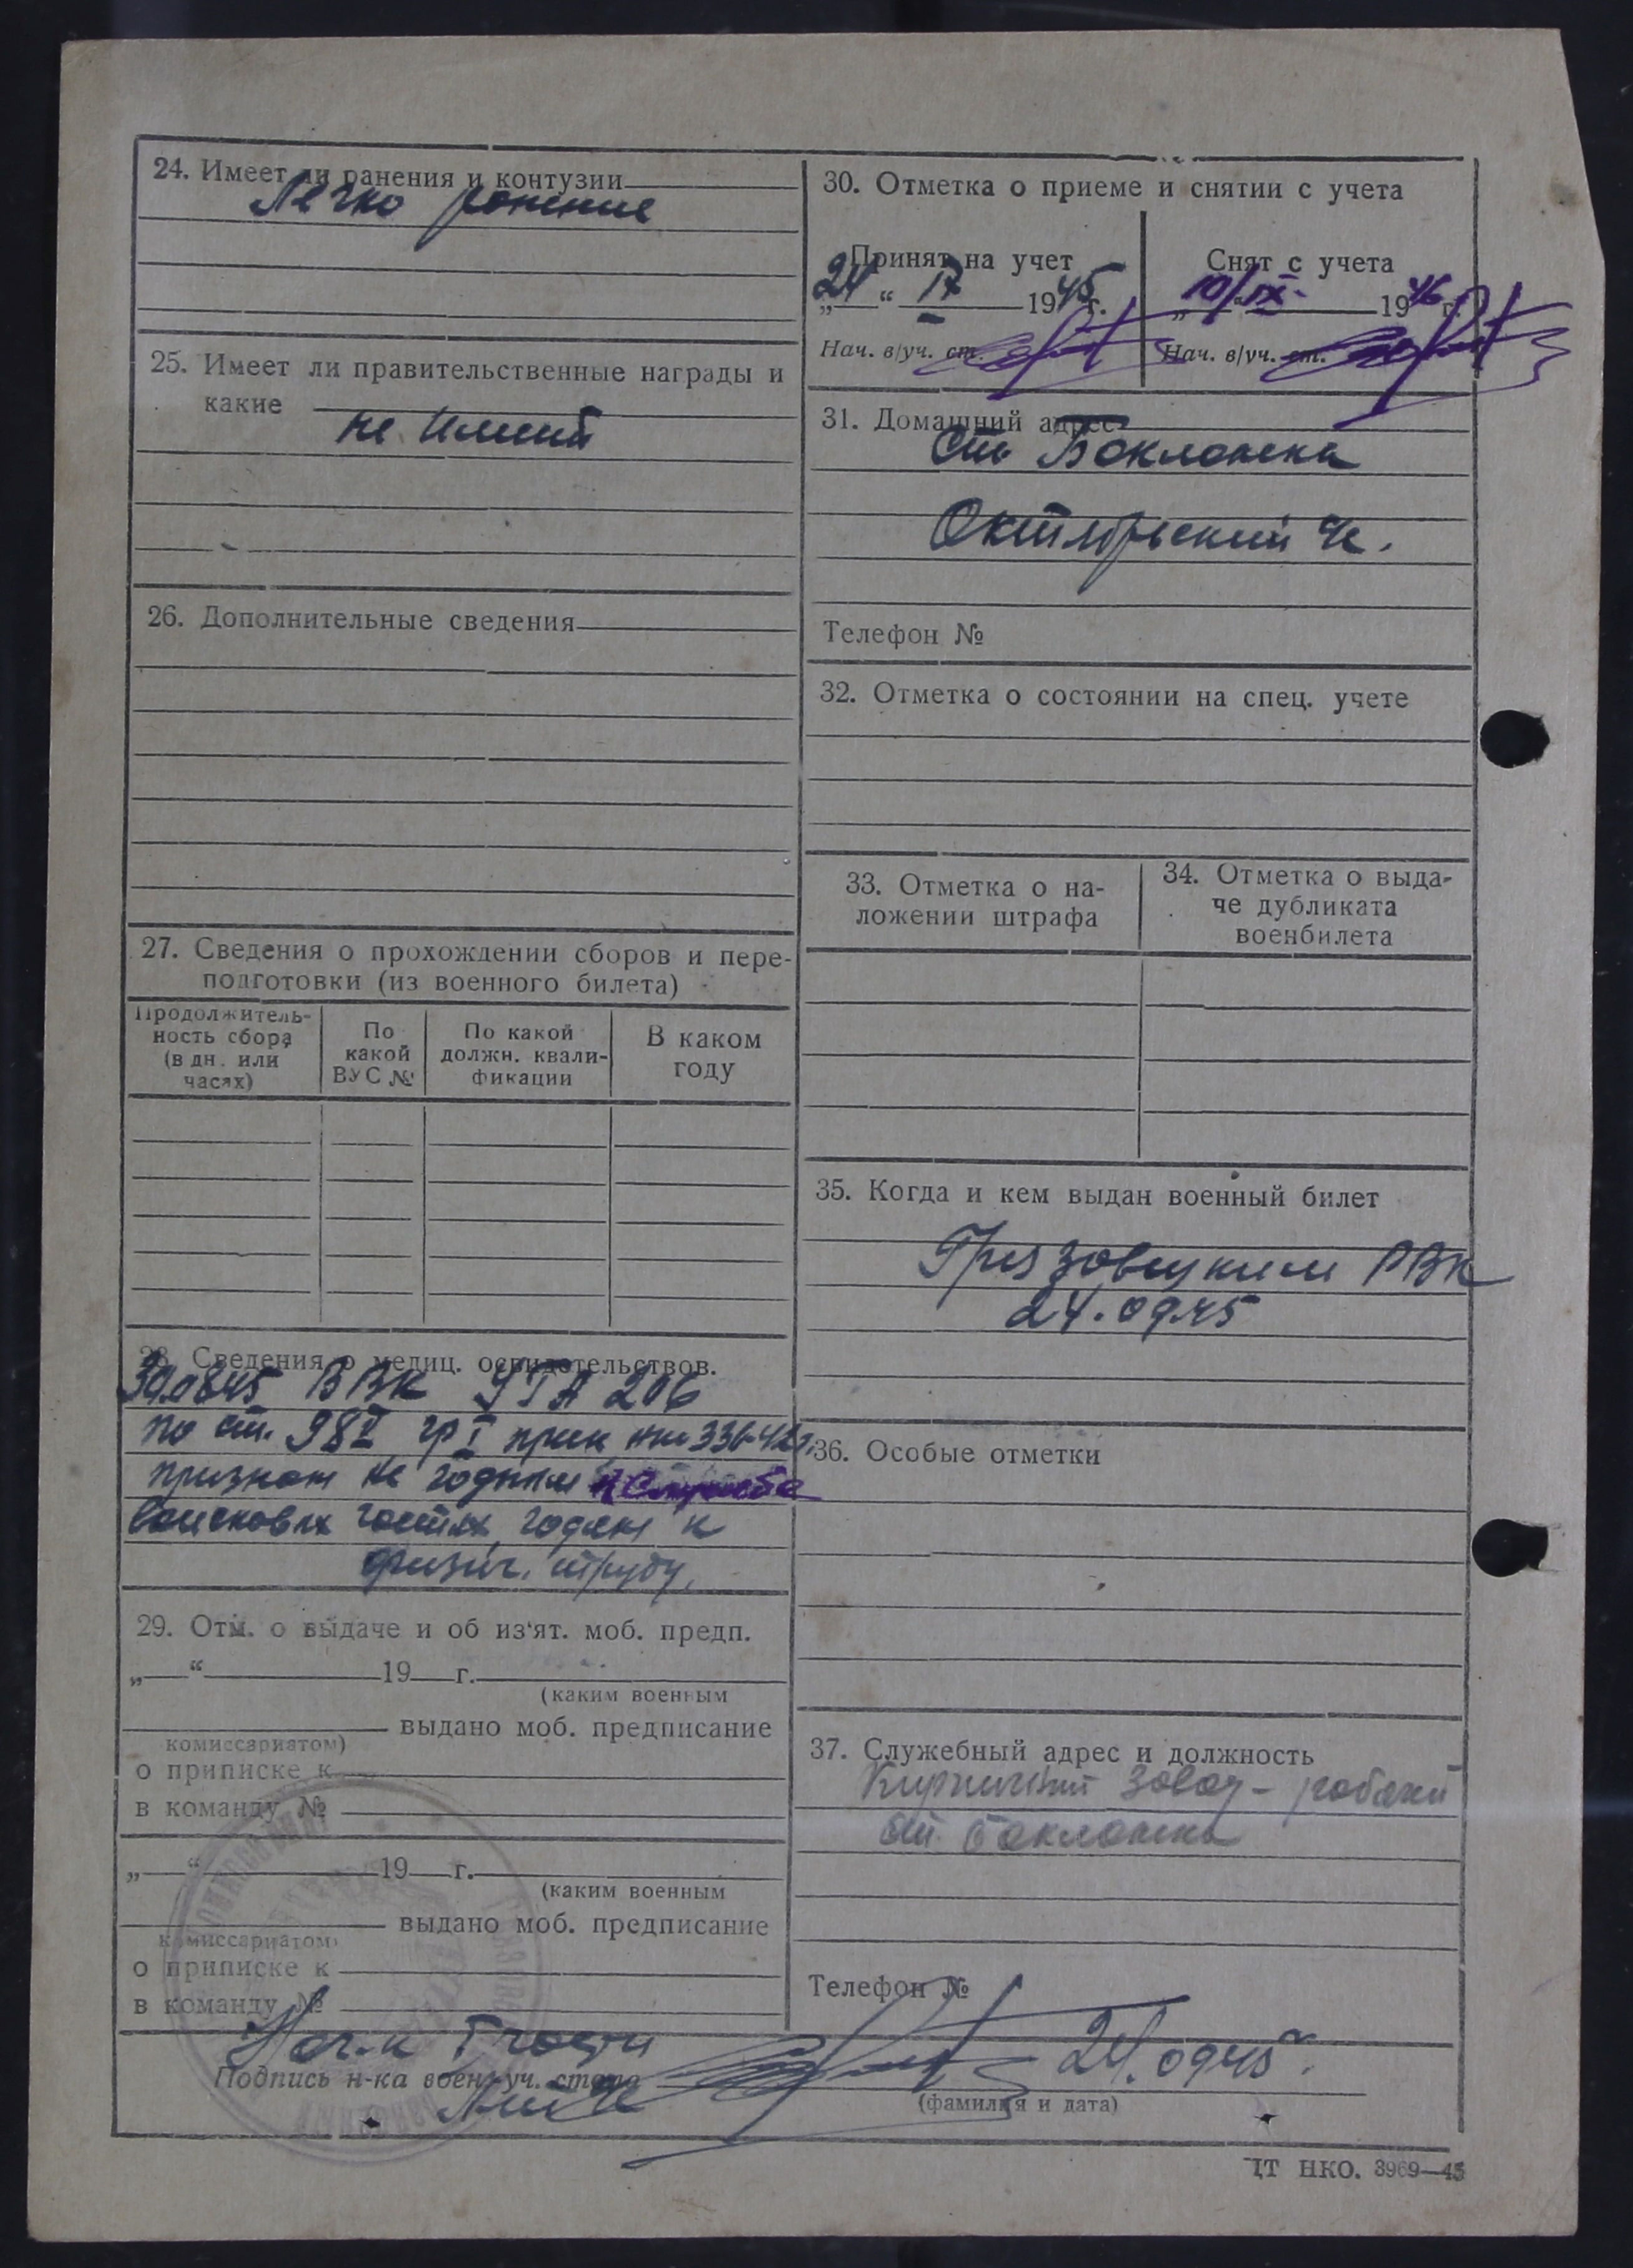 24. Имеет ли ранения и контузии
Легко ранение
25. Имеет ли правительственные награды и
какие
не имеит
26. Дополнительные сведения
27. Сведения о прохождении сборов и пере-
подготовки (из военного билета)
Продолжитель-
ность сбора
(в дн. или
часях)
По
какой
ВУС №
По какой
должн. квали-
фикации
В каком
году
28. Сведения о медиц. освидетельствов.
30.08.45 ВВК 206
по ст. 98 гр I прик нко 336-42г.
признан не годным к службе
войсковых частях, годен к
физич. труду.
29. Отм. о выдаче и об из'ят. моб. предп.
„ “ 19 г.
(каким военным
выдано моб. предписание
комиссариатом)
о приписке к
в команду №
„ “ 19 г.
(каким военным
выдано моб. предписание
комиссариатом)
о приписке к
в команду №
30. Отметка о приеме и снятии с учета
Принят на учет
24 “ IX 1945 г.
Нач. в/уч. ст.
Снят с учета
10/IX 1946 г.
Нач. в/уч. ст.
31. Домашний адрес
ст. Бакланка
Октябрьский
Телефон №
32. Отметка о состоянии на спец. учете
33. Отметка о на-
ложении штрафа
34. Отметка о выда-
че дубликата
военбилета
35. Когда и кем выдан военный билет
Грязовецким РВК
24.09.45
36. Особые отметки
37. Служебный адрес и должность
Кирпичный завод - рабочий
ст. Бакланка
Телефон №
Нач-к I части
Подпись н-ка воен-уч. стола
24.09.45 г.
(фамилия и дата)
ЦТ НКО. 3969—45